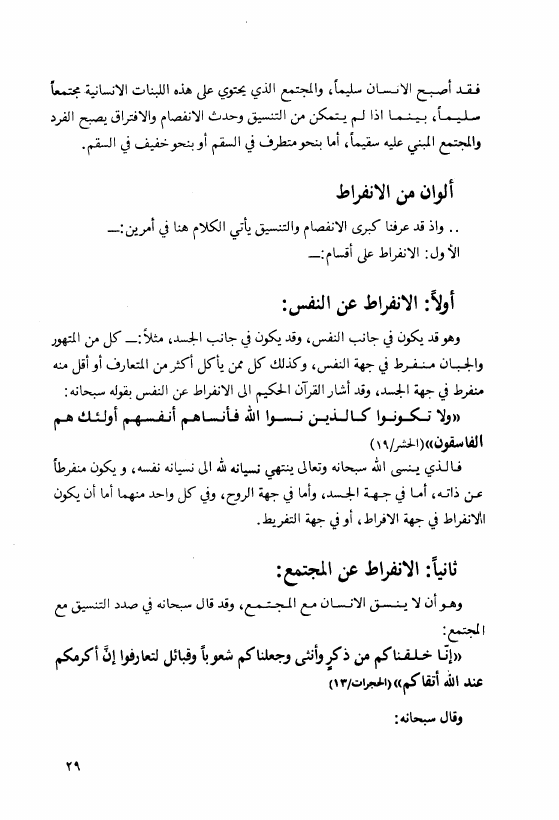 فـقـد أصـبـح الانـسـان سليماً، والمجتمع الذي يحتوي على هذه اللبنات الانسانية مجتمعاً
سـلـيـمـاً، بـيـنـمـا اذا لـم يـتمكن من التنسيق وحدث الانفصام والافتراق يصبح الفرد
والمجتمع المبني عليه سقيماً، أما بنحو متطرف في السقم أو بنحو خفيف في السقم.
ألوان من الانفراط
.. واذ قد عرفنا كبرى الانفصام والتنسيق يأتي الكلام هنا في أمرين:ــ
الأول: الانفراط على أقسام:ــ
أولاً: الانفراط عن النفس:
وهو قد يكون في جانب النفس، وقد يكون في جانب الجسد، مثلاً:ــ كل من المتهور
والجـبـان مـنـفـرط في جهة النفس، وكذلك كل ممن يأكل أكثر من المتعارف أو أقل منه
منفرط في جهة الجسد، وقد أشار القرآن الحكيم الى الانفراط عن النفس بقوله سبحانه:
«ولا تـكـونـوا كـالـذيـن نـسـوا الله فـأنـساهـم أنـفـسـهـم أولـئـك هـم
الفاسقون»(الحشر/١٩)
فـالـذي يـنـسى الله سبحانه وتعالى ينتهي نسيانه لله الى نسيانه نفسه، و يكون منفرطاً
عـن ذاتـه، أمـا في جـهـة الجـسد، وأما في جهة الروح، وفي كل واحد منهما أما أن يكون
الانفراط في جهة الافراط، أو في جهة التفريط.
ثانياً: الانفراط عن المجتمع:
وهـو أن لا يـنـسـق الانـسـان مـع المـجـتـمـع، وقد قال سبحانه في صدد التنسيق مع
المجتمع:
«إنّـا خـلـقـنـاكم من ذكرٍ وأنثى وجعلناكم شعوباً وقبائل لتعارفوا إنَّ أكرمكم
عند الله أتقاكم» (الحجرات/١٣)
وقال سبحانه:
٢٩